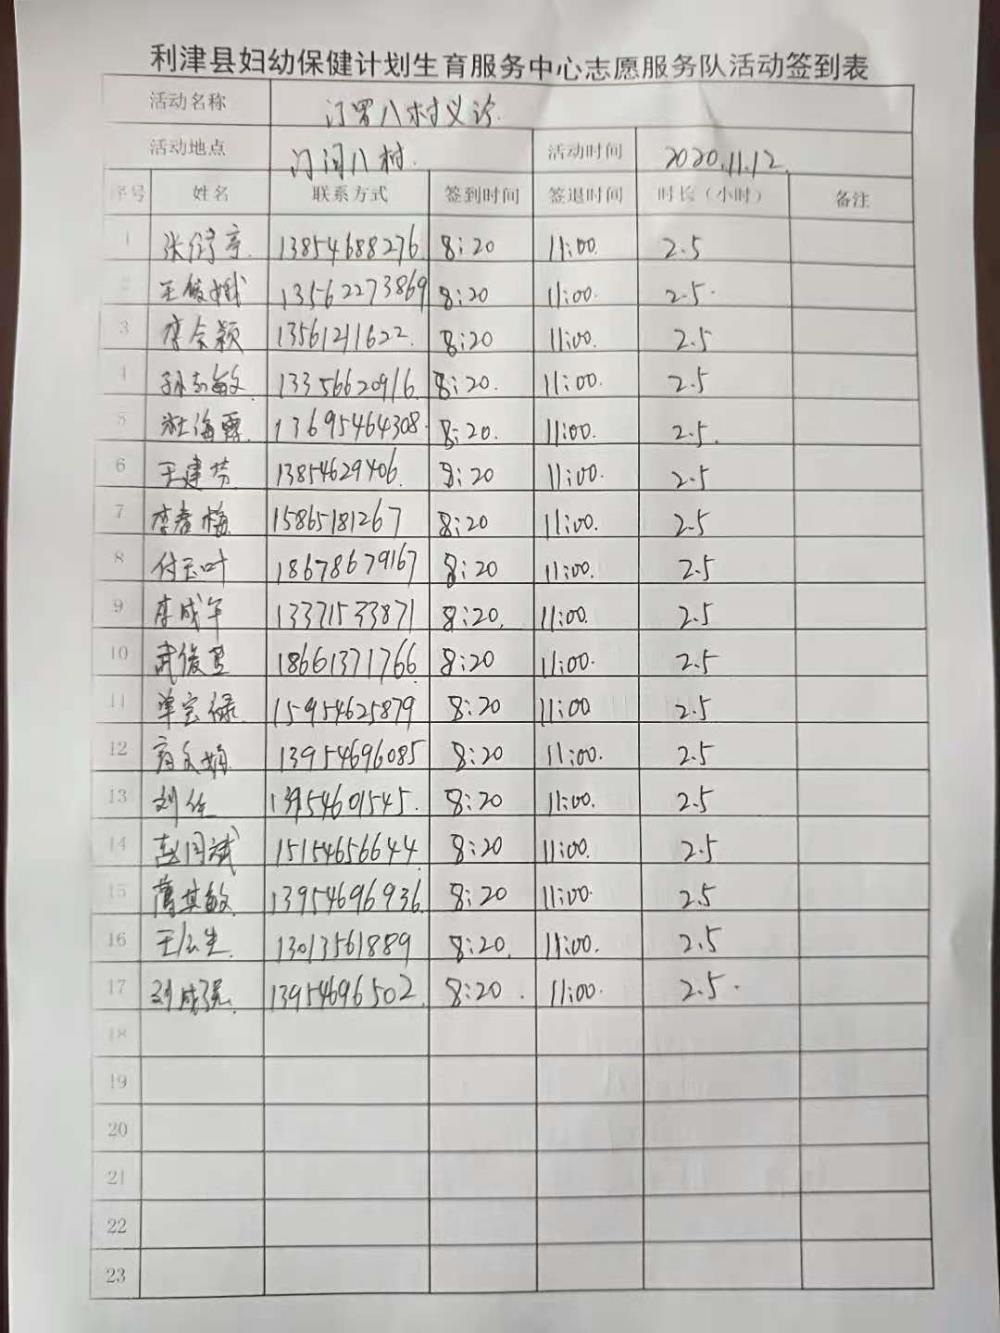 利津县妇幼保健计划生育服务中心志愿服务队活动签到表
活动名称 汀罗八村义诊
活动地点 汀河八村. 活动时间 2020.11.12.
序号 姓名 联系方式 签到时间 签退时间 时长（小时） 备注
1 13854688276 8:20 11:00. 2.5
2 王俊娥 13562273869 8:20 11:00. 2.5.
3 李会颖 13561211622. 8:20 11:00. 2.5
4 孙志敏 13356620916. 8:20. 11:00. 2.5
5 杜海霞 13695464308. 8:20. 11:00. 2.5.
6 王建芳 13854629406. 8:20 11:00. 2.5
7 李春梅 15865181267 8:20 11:00. 2.5
8 付玉叶 18678679167 8:20 11:00. 2.5
9 李成年 13371533871 8:20. 11:00. 2.5
10 18661371766 8:20 11:00. 2.5
11 单宝禄 15954625879 8:20 11:00 2.5
12 13954696085 8:20 11:00. 2.5
13 13954601545. 8:20 11:00. 2.5
14 赵国斌 15154656644 8:20 11:00. 2.5
15 薄其敏 13954696936. 8:20 11:00. 2.5
16 王公生 13013561889 8:20. 11:00. 2.5
17 刘成强 13954696502. 8:20. 11:00. 2.5.
18
19
20
21
22
23